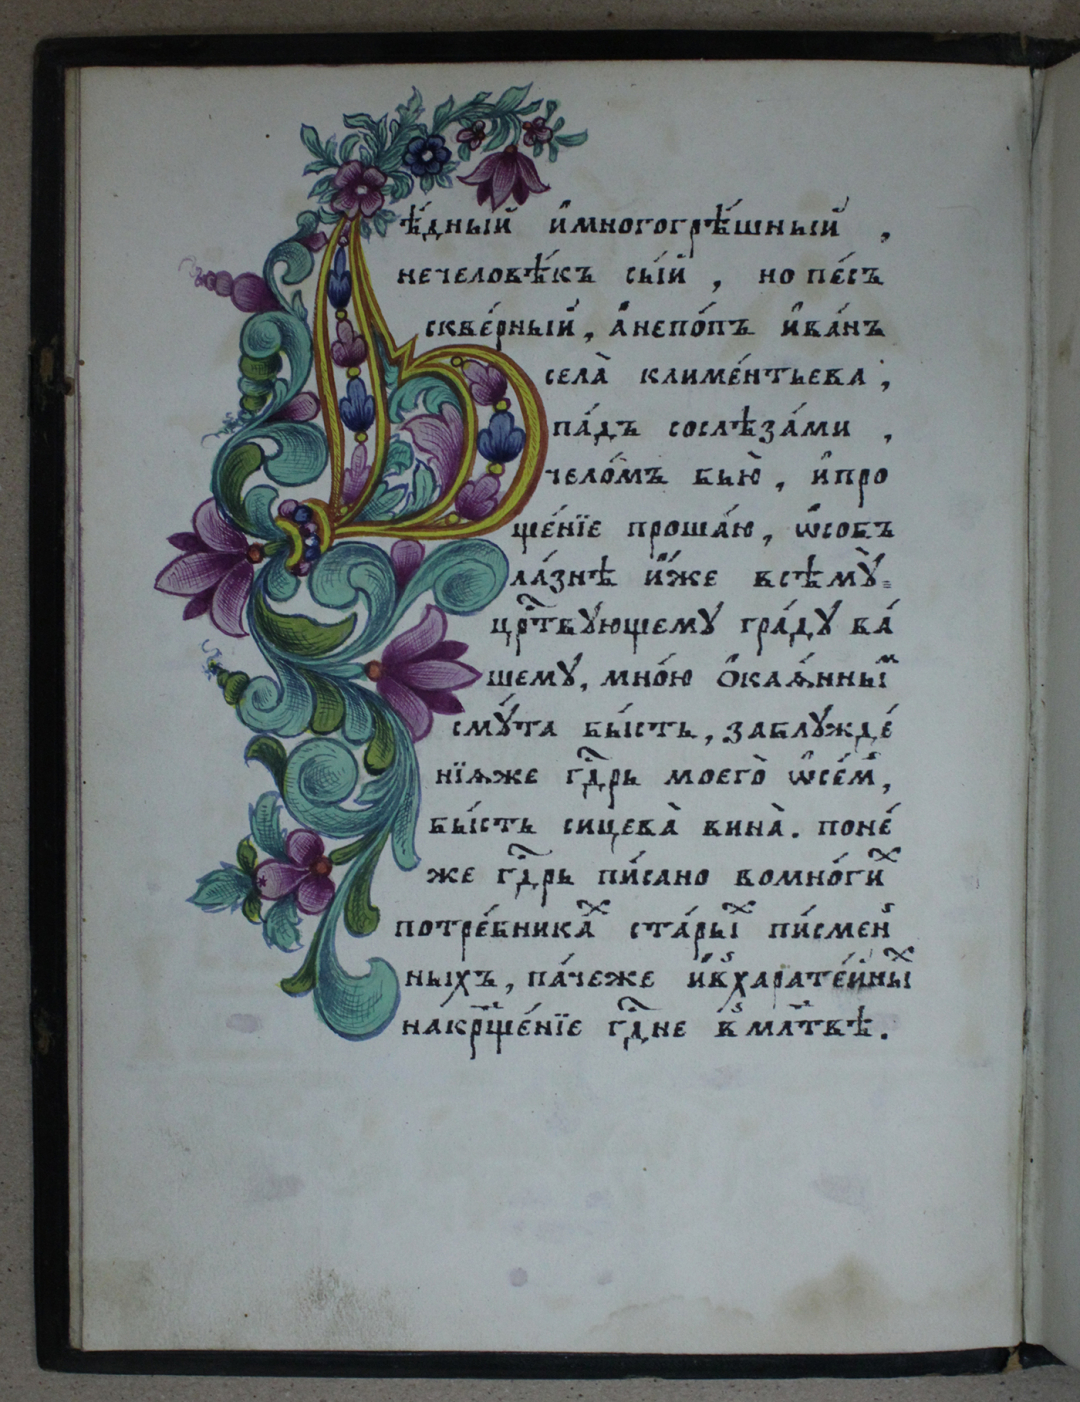 Бѣ́дный и҆многогрѣ́шный ,
нечеловѣ́къ сы́й , но пе́съ
скве́рный , а҆непо́пъ и҆ва́нъ
села̀ климе́нтьева ,
па́дъ сослѣза́ми ,
чело́мъ бью̀ , и҆про
ще́нїе проша́ю , ѡ҆собъ
ла́знѣ и҆́же всѣмꙋ̀
црⷭ҇твꙋющемꙋ гра́дꙋ ва́
шемꙋ , мно́ю ѻ҆кая́нныⷨ
смꙋ́та бы́сть , заблꙋжде́
нїѧже гдⷭ҇рь моего̀ ѡ҆се́мъ ,
бы́сть сицева̀ вина̀ . поне́
же гдⷭ҇рь пи́сано вомно́гиⷯ
потре́бникаⷯ ста́рыⷯ пи́смен
ныхъ , па́чеже и҆в̾харате́йныⷯ
накрⷭ҇ще́нїе гдⷭ҇не в̾млтⷡ҇вѣ .